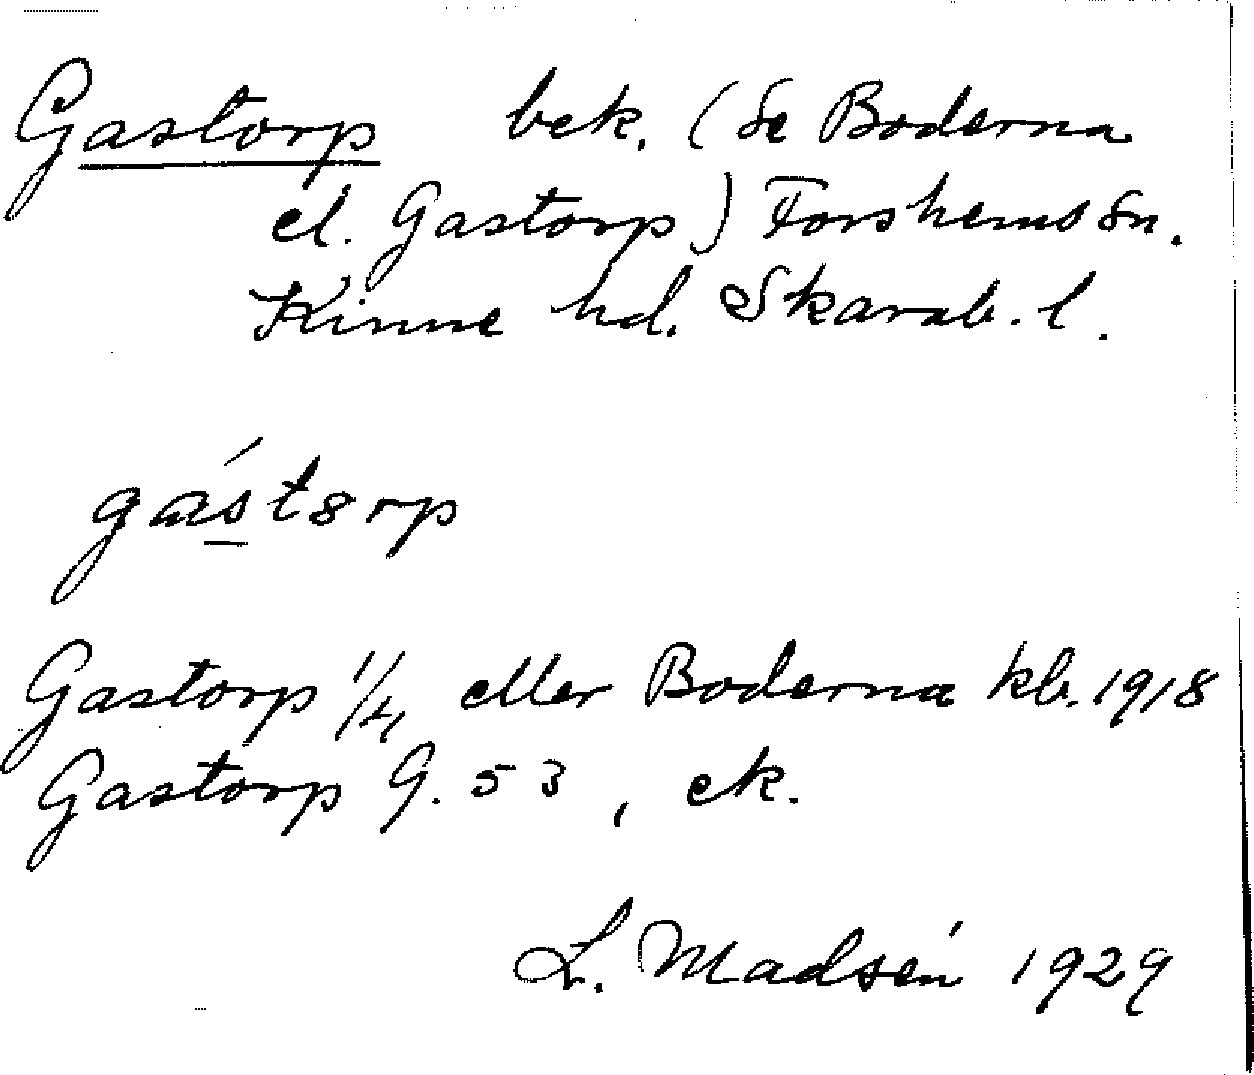 Gastorp bek. (Se Boderna
el. Gastorp) Forshems sn.
Kinne hd. Skarab. l.
gástorp
Gastorp 1/4 eller Boderna kb. 1918
Gastorp G. 53, ek.
L. Madsén 1929